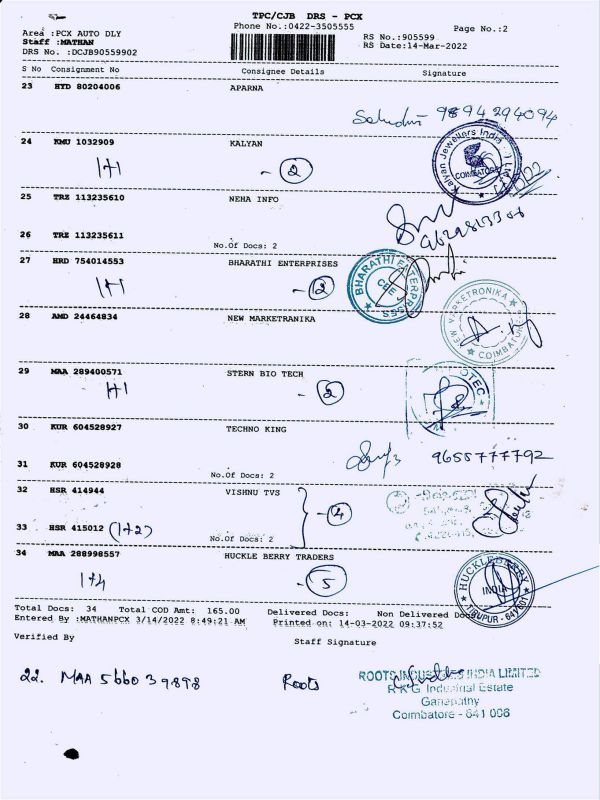 TPC/CJB DRS - PCX
Phone No.:0422-3505555
Page No.:2
Area :PCX AUTO DLY
Staff :MATHAN
DRS No. :DCJB90559902
RS No.:905599
RS Date:14-Mar-2022
S No Consignment No Consignee Details Signature
23 HYD 80204006 APARNA
9894294094
24 KMU 1032909 KALYAN
1+1 - 2
Kalyan Jewellers India
COIMBATORE
25 TRZ 113235610 NEHA INFO
26 TRZ 113235611
No.Of Docs: 2
27 HRD 754014553 BHARATHI ENTERPRISES
1+1 - 2
BHARATHI ENTERPRISES
CBE
28 AMD 24464834 NEW MARKETRANIKA
NEW MARKETRONIKA
COIMBATORE
29 MAA 289400571 STERN BIO TECH
1+1 - 2
30 KUR 604528927 TECHNO KING
9655777792
31 KUR 604528928
No.Of Docs: 2
32 HSR 414944 VISHNU TVS
- 4
33 HSR 415012 (1+2)
No.Of Docs: 2
34 MAA 288998557 HUCKLE BERRY TRADERS
1+4 - 5
HUCKLEBERRY
INDIA
TIRUPUR - 641 601
Total Docs: 34 Total COD Amt: 165.00 Delivered Docs: Non Delivered Docs
Entered By :MATHANPCX 3/14/2022 8:49:21 AM Printed on: 14-03-2022 09:37:52
Verified By Staff Signature
22. MAA 566039898 Roots
ROOTS INDUSTRIES INDIA LIMITED
R.K.G. Industrial Estate
Ganapathy
Coimbatore - 641 006